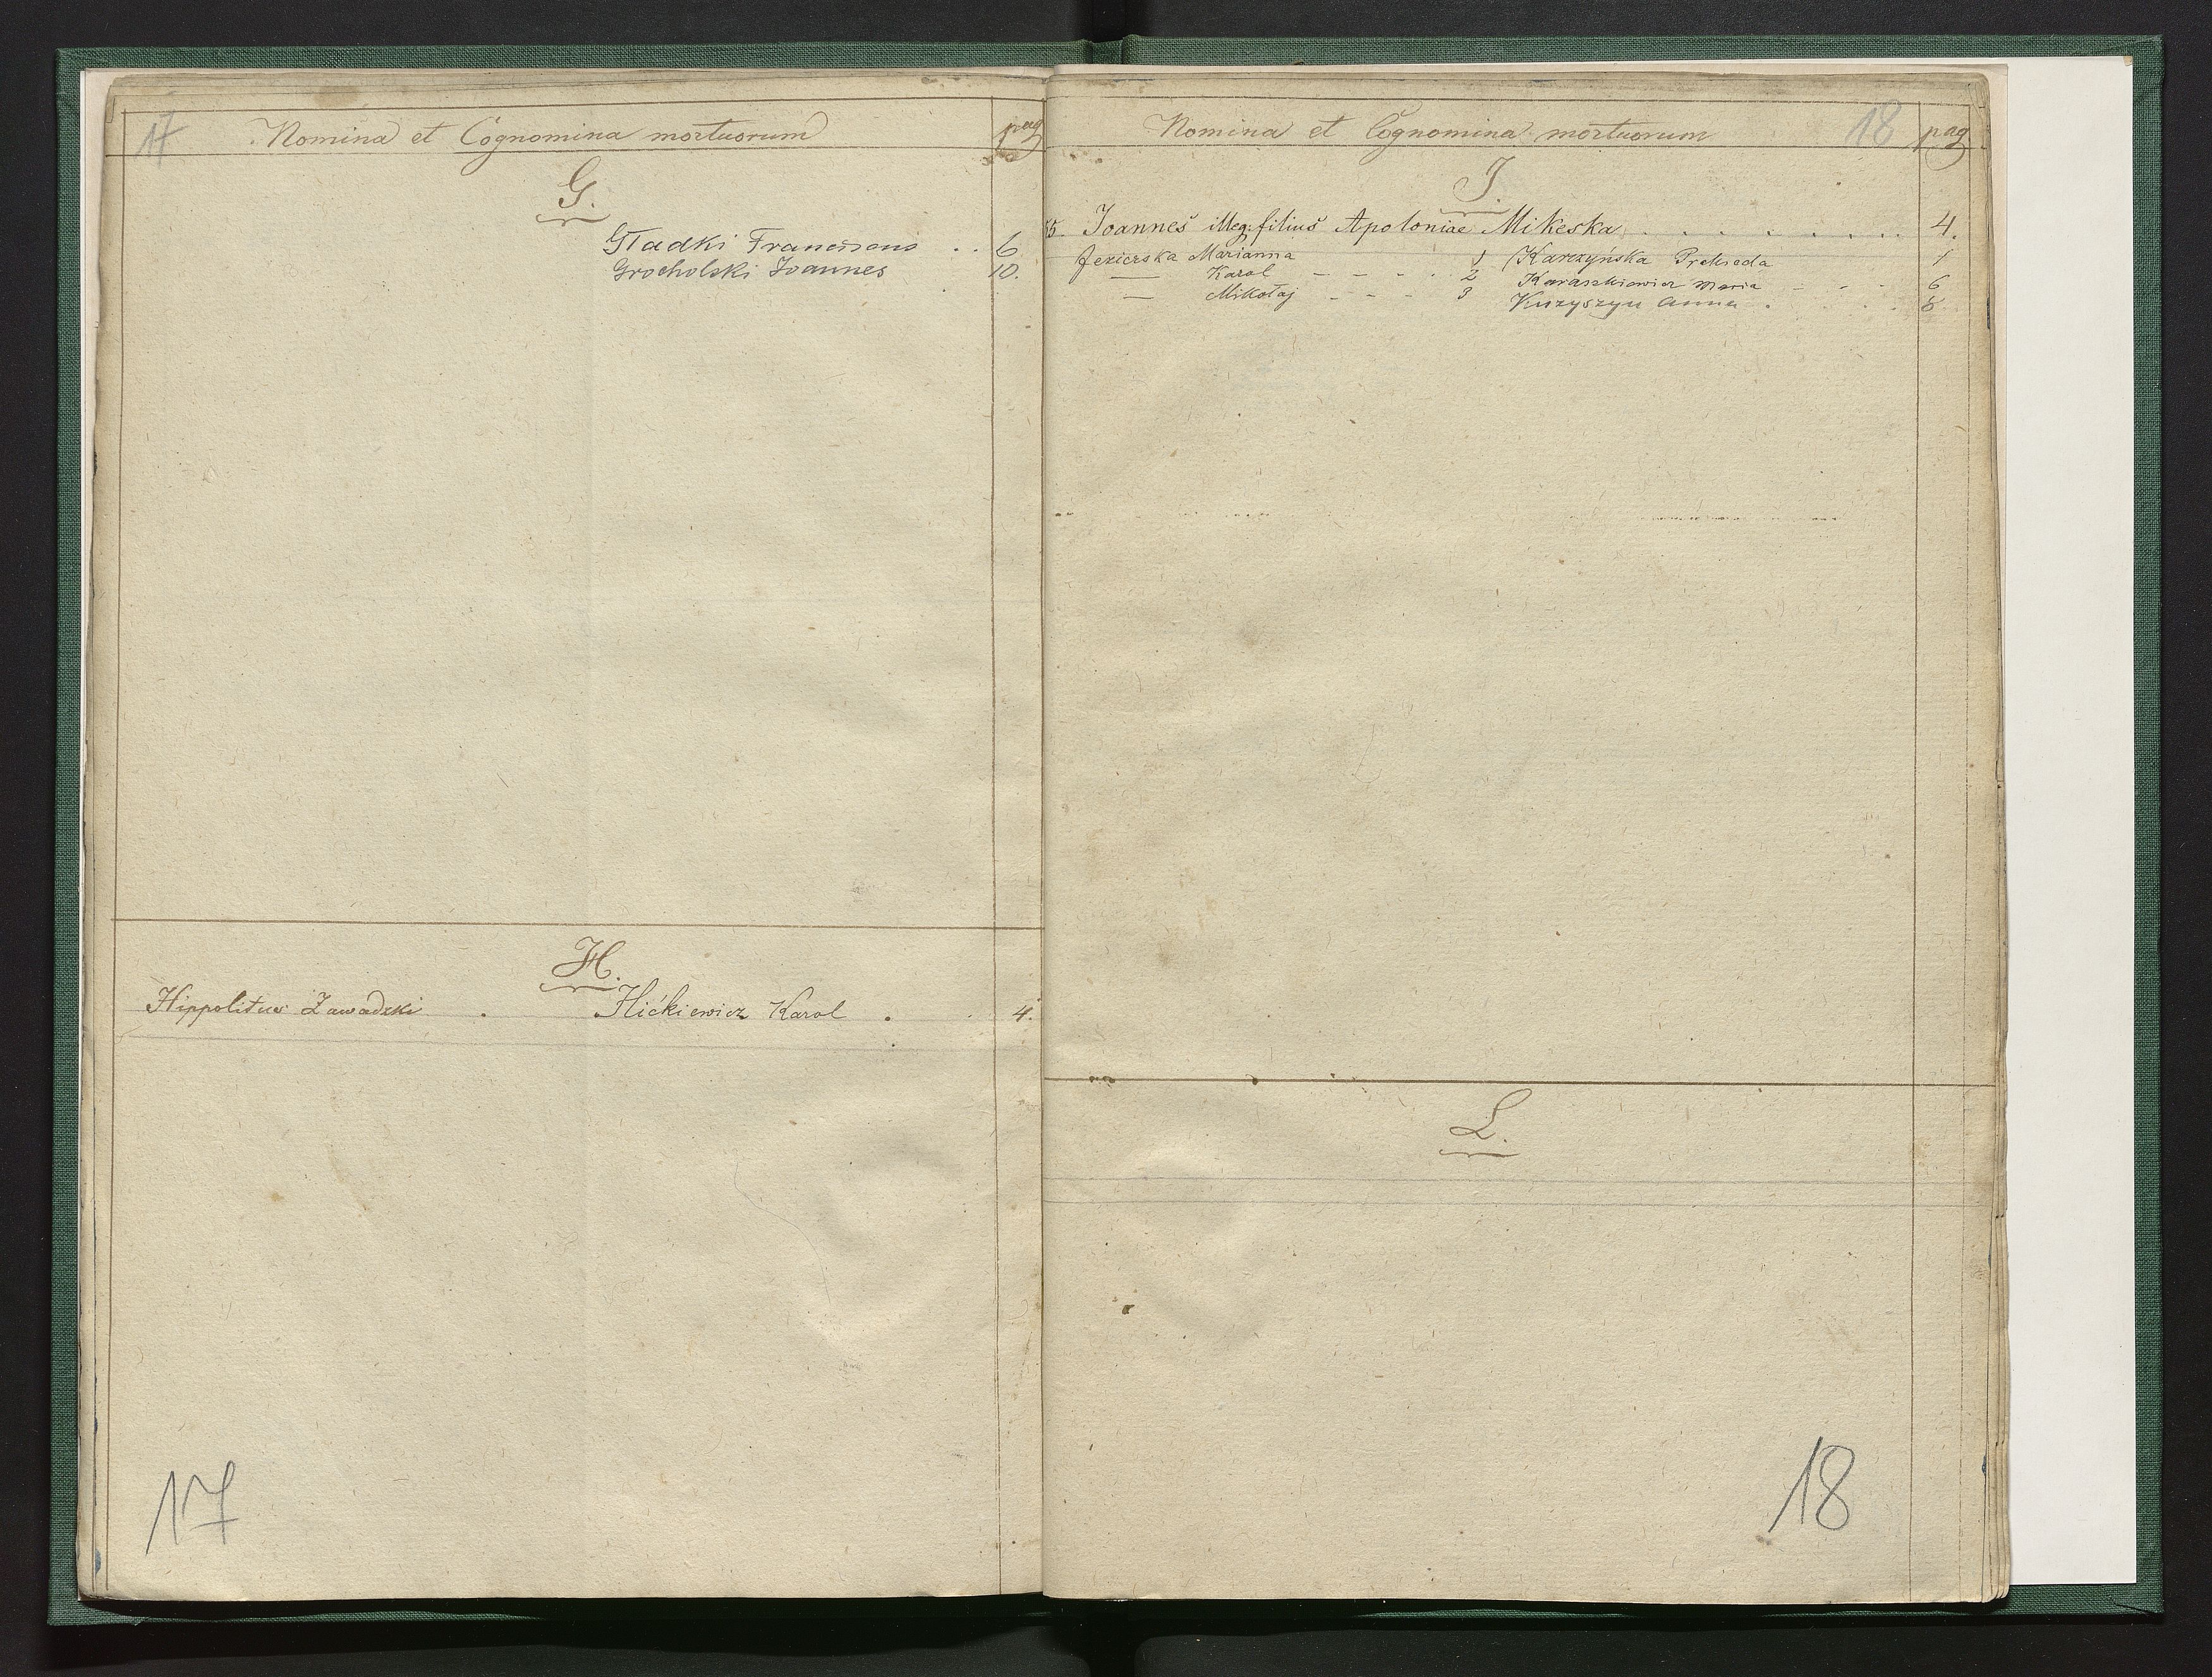 17 Nomina et Cognomina mortuorum pag
G.
Gładki Franciscus . . 6
Grocholski Joannes 10.
H.
Hippolitus Zawadzki . Hićkiewicz Karol . . 4.
17
Nomina et Cognomina mortuorum 18 pag
I.
55. Joannes illeg: filius Apoloniae Mikeska . . . . . . . . 4.
Jezierska Marianna 1 Karczyńska Prekseda 1
— Karol - - - - 2 Karaszkiewicz Maria - - - 6
— Mikołaj - - - 3 Kuzyszyn Anna . . . . 8
L.
18